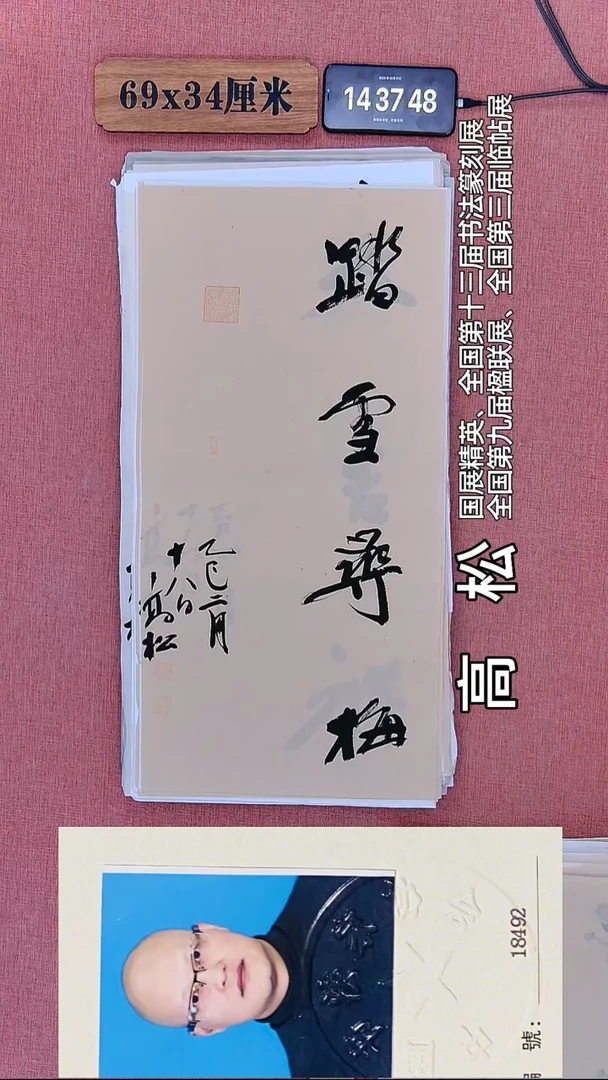 69x34厘米
14 37 48
踏雪寻梅
乙巳二月
十八日
高松
高松
国展精英、全国第十三届书法篆刻展
全国第九届楹联展、全国第三届临帖展
18492
號：